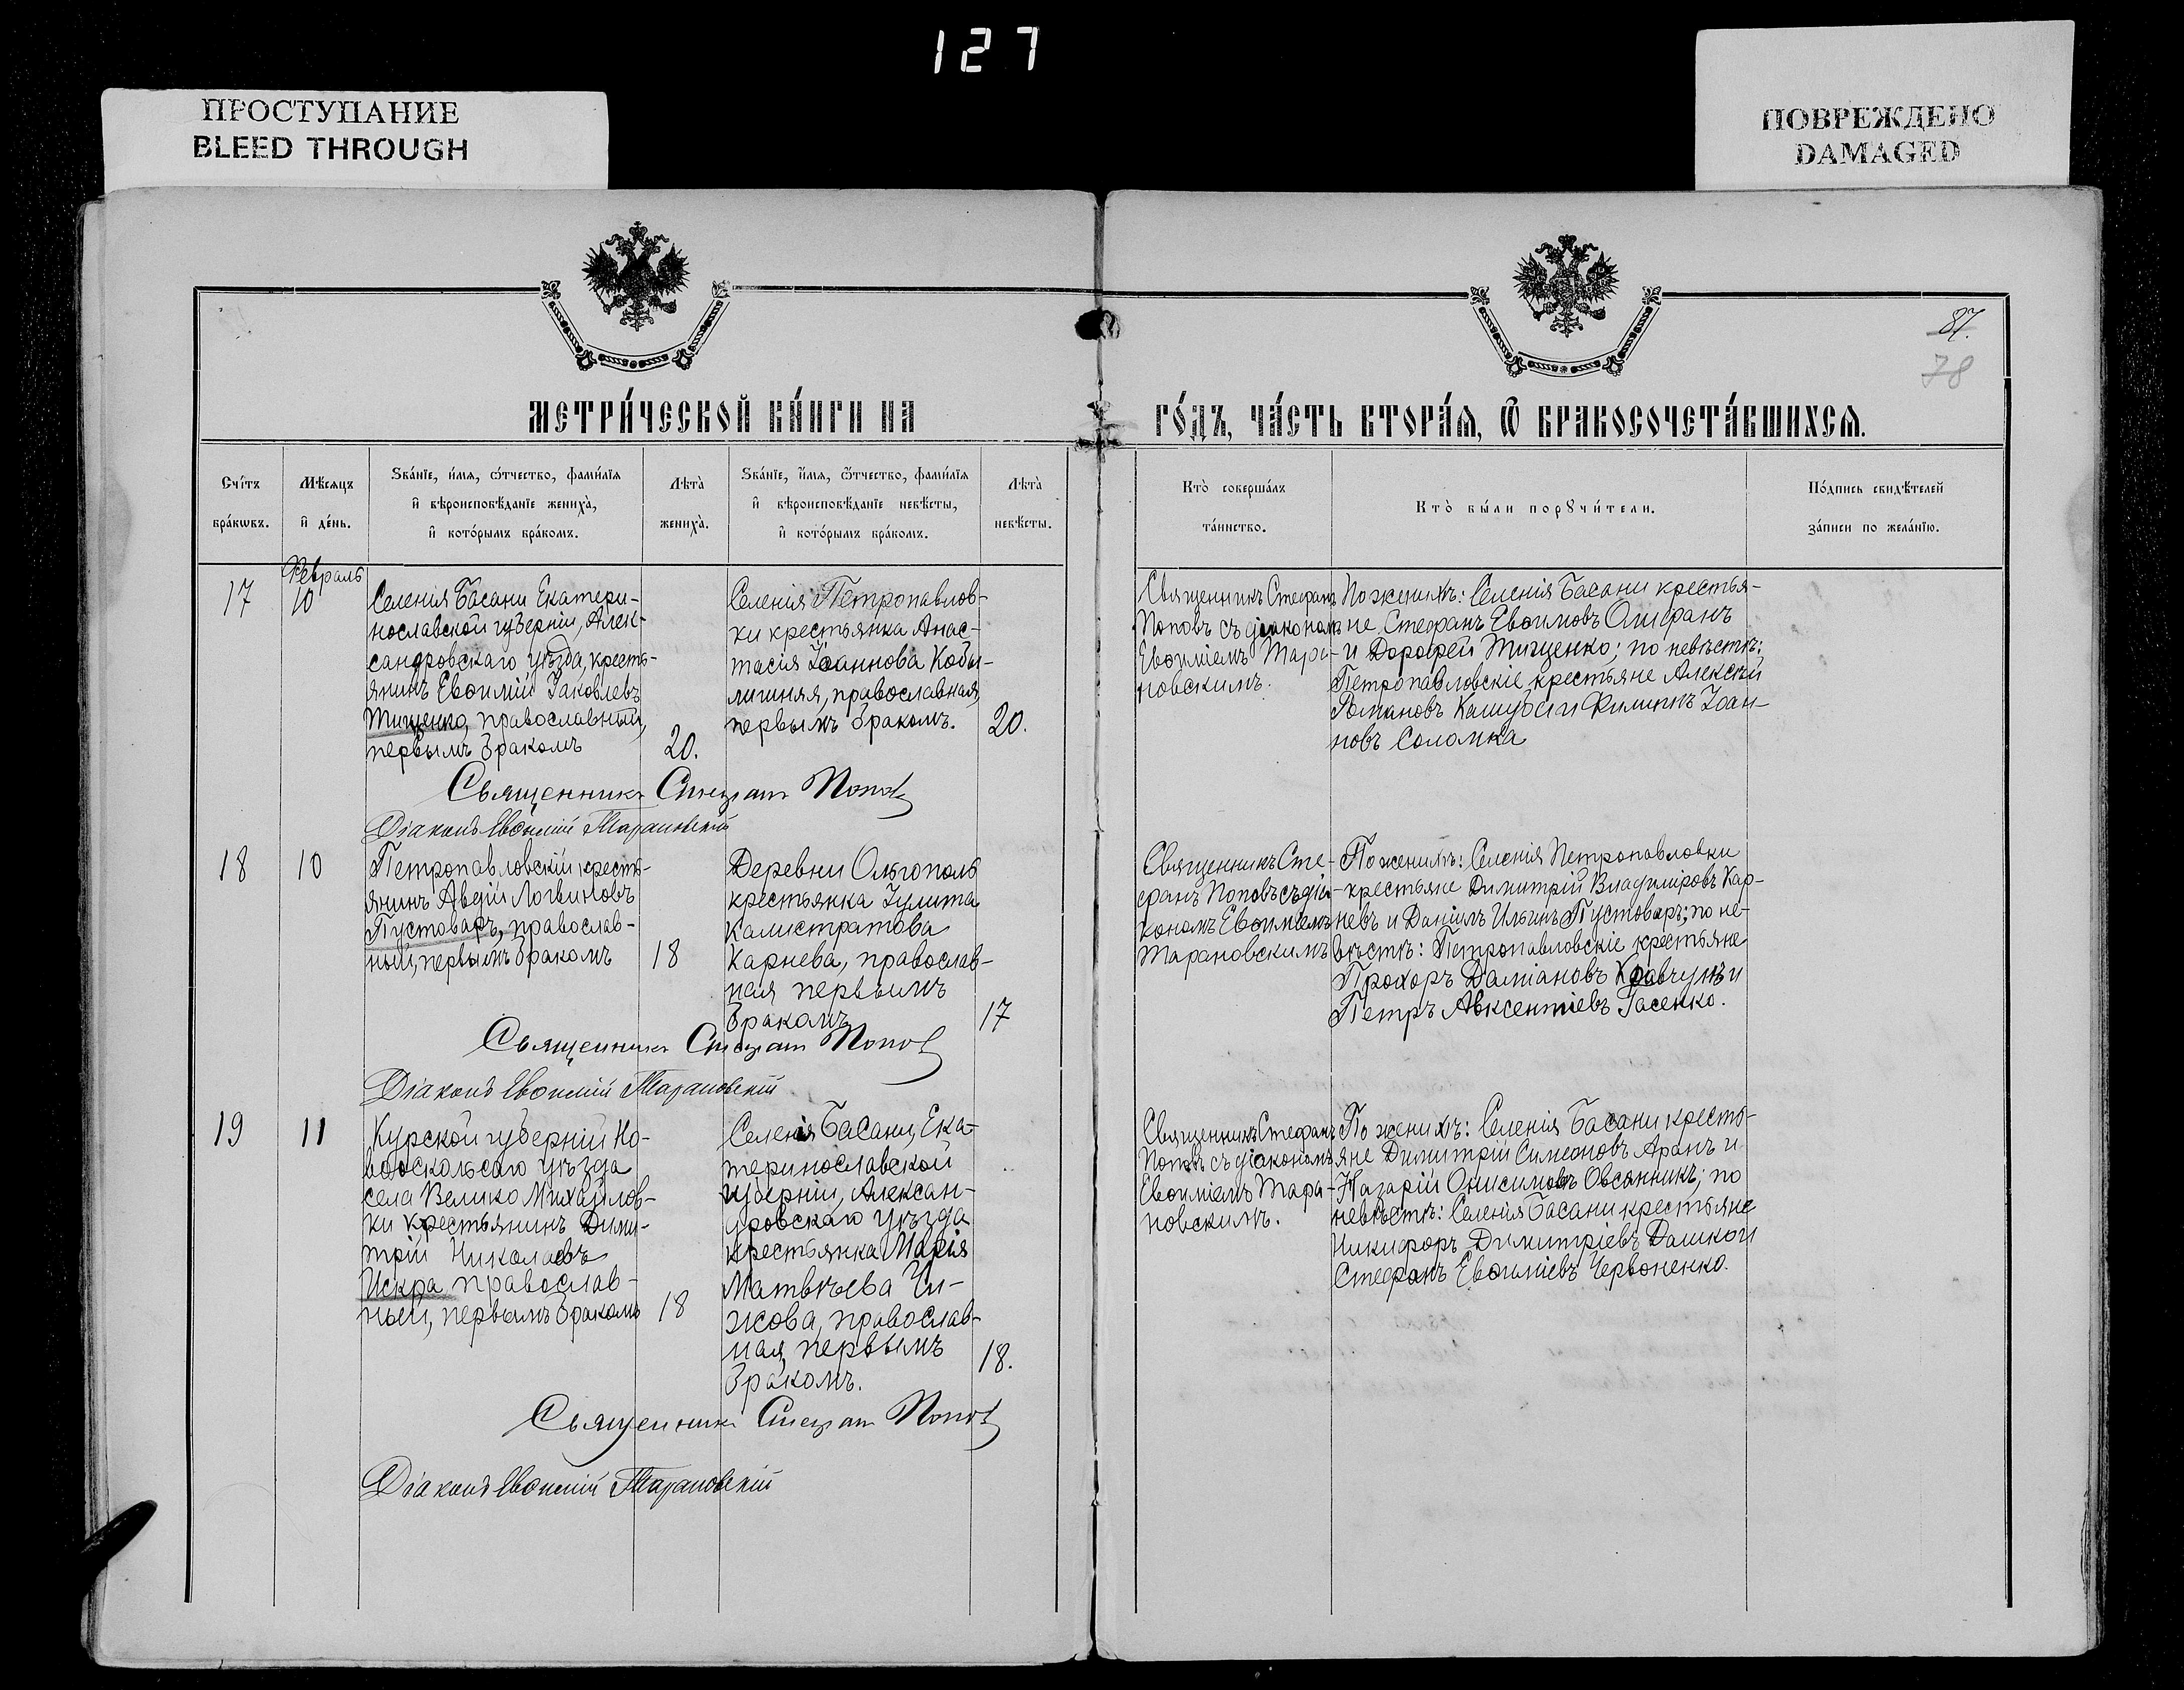 127
ПРОСТУПАНИЕ
BLEED THROUGH
ПОВРЕЖДЕНО
DAMAGED
87.
78
МЕТРИ́ЧЕСКОЙ КНИ́ГИ НА
ГО́ДЪ, ЧА́СТЬ ВТОРА́Ѧ, Ѿ БРАКОСОЧЕТА́ВШИХСѦ.
Сче́тъ
бра́кѡвъ.
Мѣ́сяцъ
и де́нь.
Ѕва́нїе, и́мя, ѻ́тчество, фами́лїя
и вѣроисповѣ́данїе жениха̀,
и кото́рымъ бра́комъ.
Лѣта̀
жениха̀.
Ѕва́нїе, и́мя, ѻ́тчество, фами́лїя
и вѣроисповѣ́данїе невѣ́сты,
и кото́рымъ бра́комъ.
Лѣта̀
невѣ́сты.
Кто̀ соверша́лъ
та́инство.
Кто̀ бы́ли порꙋчи́тели.
По́дпись свидѣ́телей
за́писи по жела́нїю.
Февраль
17
10
Селенія Басани Екатери-
нославской губерніи, Алек-
сандровскаго уѣзда, кресть-
янинъ Евѳимій Іаковлевъ
Тищенко, православный,
первымъ бракомъ
20.
Селенія Петропавлов-
ки крестьянка Анас-
тасія Іоаннова Кобы-
лишняя, православная,
первымъ бракомъ.
20.
Священникъ Стефанъ
Поповъ съ діакономъ
Евѳиміемъ Тара-
новскимъ.
По женихѣ: Селенія Басани крестья-
не Стефанъ Евѳимовъ
и Дороѳей Тищенко; по невѣстѣ:
Петропавловскіе крестьяне Алексѣй
Романовъ Кашуба и Филиппъ Іоан-
новъ Соломка
Священникъ Стефанъ Поповъ
Діаконъ Евѳимій Тарановскій
18
10
Петропавловскій кресть-
янинъ Авдій Логвиновъ
Пустоваръ, православ-
ный, первымъ бракомъ
18
Деревни Ольгополь
крестьянка Іулита
Калистратова
Карнева, православ-
ная первымъ
бракомъ
17
Священникъ Сте-
фанъ Поповъ съ діа-
кономъ Евѳиміемъ
Тарановскимъ
По женихѣ: Селенія Петропавловки
крестьяне Димитрій Владиміровъ Кар-
невъ и Даніилъ Ильинъ Пустоваръ; по не-
вѣстѣ: Петропавловскіе крестьяне
Прохоръ Даміановъ Кравчунъ и
Петръ Авксентіевъ Гасенко.
Священникъ Стефанъ Поповъ
Діаконъ Евѳимій Тарановскій
19
11
Курской губерніи Но-
вооскольсаго уѣзда
села Велико Михайлов-
ки крестьянинъ Дими-
трій Николаевъ
Искра православ-
ный, первымъ бракомъ
18
Селенія Басани, Ека-
теринославской
губерніи, Алексан-
дровскаго уѣзда
крестьянка Марія
Матвѣева Чи-
жова, православ-
ная, первымъ
бракомъ.
18.
Священникъ Стефанъ
Поповъ съ діакономъ
Евѳиміемъ Тара-
новскимъ.
По женихѣ: Селенія Басани кресть-
яне Димитрій Симеоновъ Аранъ и
Назарій Онисимовъ Овсянникъ; по
невѣстѣ: Селенія Басани крестьяне
Никифоръ Димитріевъ Дашко и
Стефанъ Евѳиміевъ Червоненко.
Священникъ Стефанъ Поповъ
Діаконъ Евѳимій Тарановскій